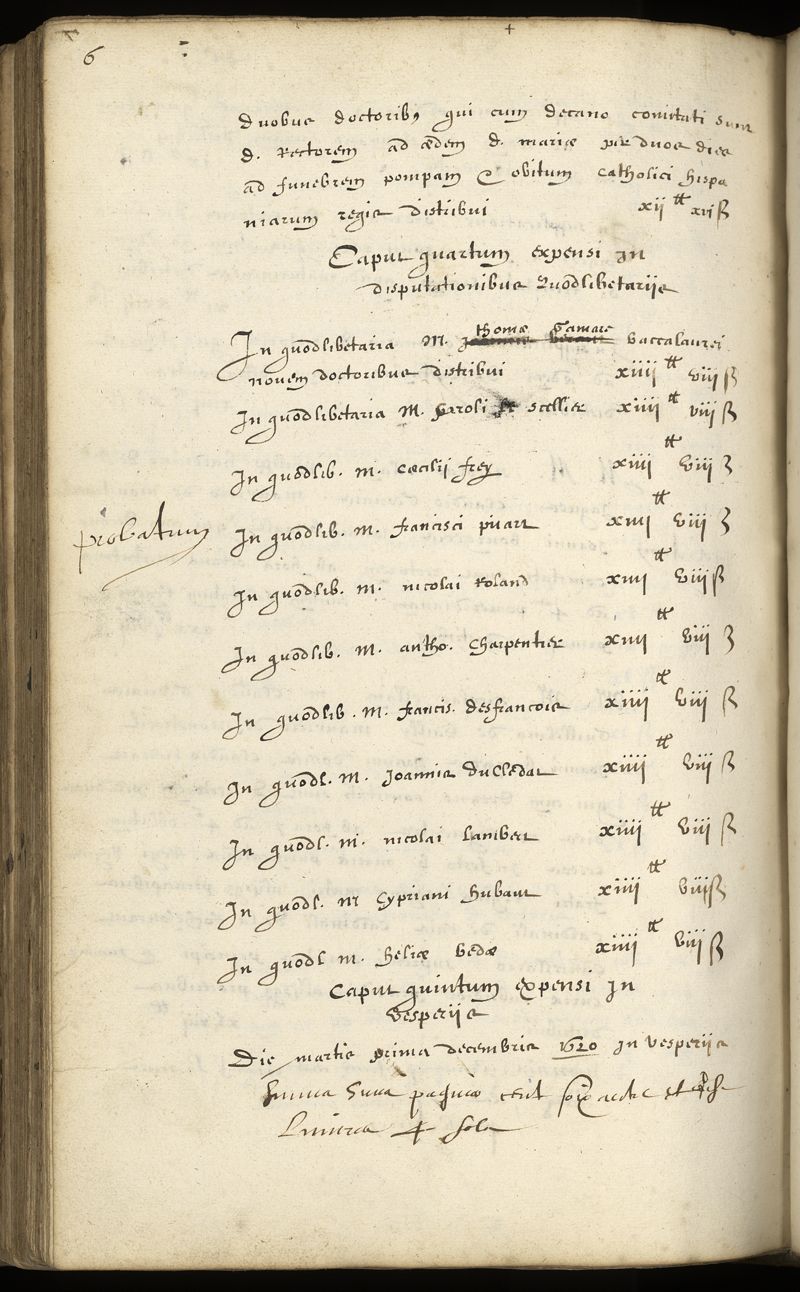 6
duobus doctorib9 qui cum decano comitati sunt
d. Rectorem ad ædem d. mariæ per duos dies
ad funebrem pompam & obitum catholici hispa
niarum regis distribui xij tt xvi ß
Caput quartum expensi in
disputationibus Quodlibetariis
thomæ Gamare
In quodlibetaria M. baccalaurei
novem doctoribus distribui xiiij tt viij ß
In quodlibetaria M. Caroli le scellier xiiij tt viij ß
In quodlib. M. Cæcilij frey xiiij tt viij ß
probatum
In quodlib. M. francisci pijart xiiij tt viij ß
In quodlib. M. nicolai Roland xiiij tt viij ß
In quodlib. M. antho. Charpentier xiiij tt viij ß
In quodlib. M. francis. desfrancois xiiij tt viij ß
In quodl. M. Joannis du Cledat xiiij tt viij ß
In quodl. M. nicolai Lambert xiiij tt viij ß
In quodl. M Cypriani Hubaut xiiij tt viij ß
In quodl M. Heliæ bedæ xiiij tt viij ß
Caput quintum expensi in
vesperiis
Die martis prima decembris 1620 in vesperiis
Summa paginæ cent
sols